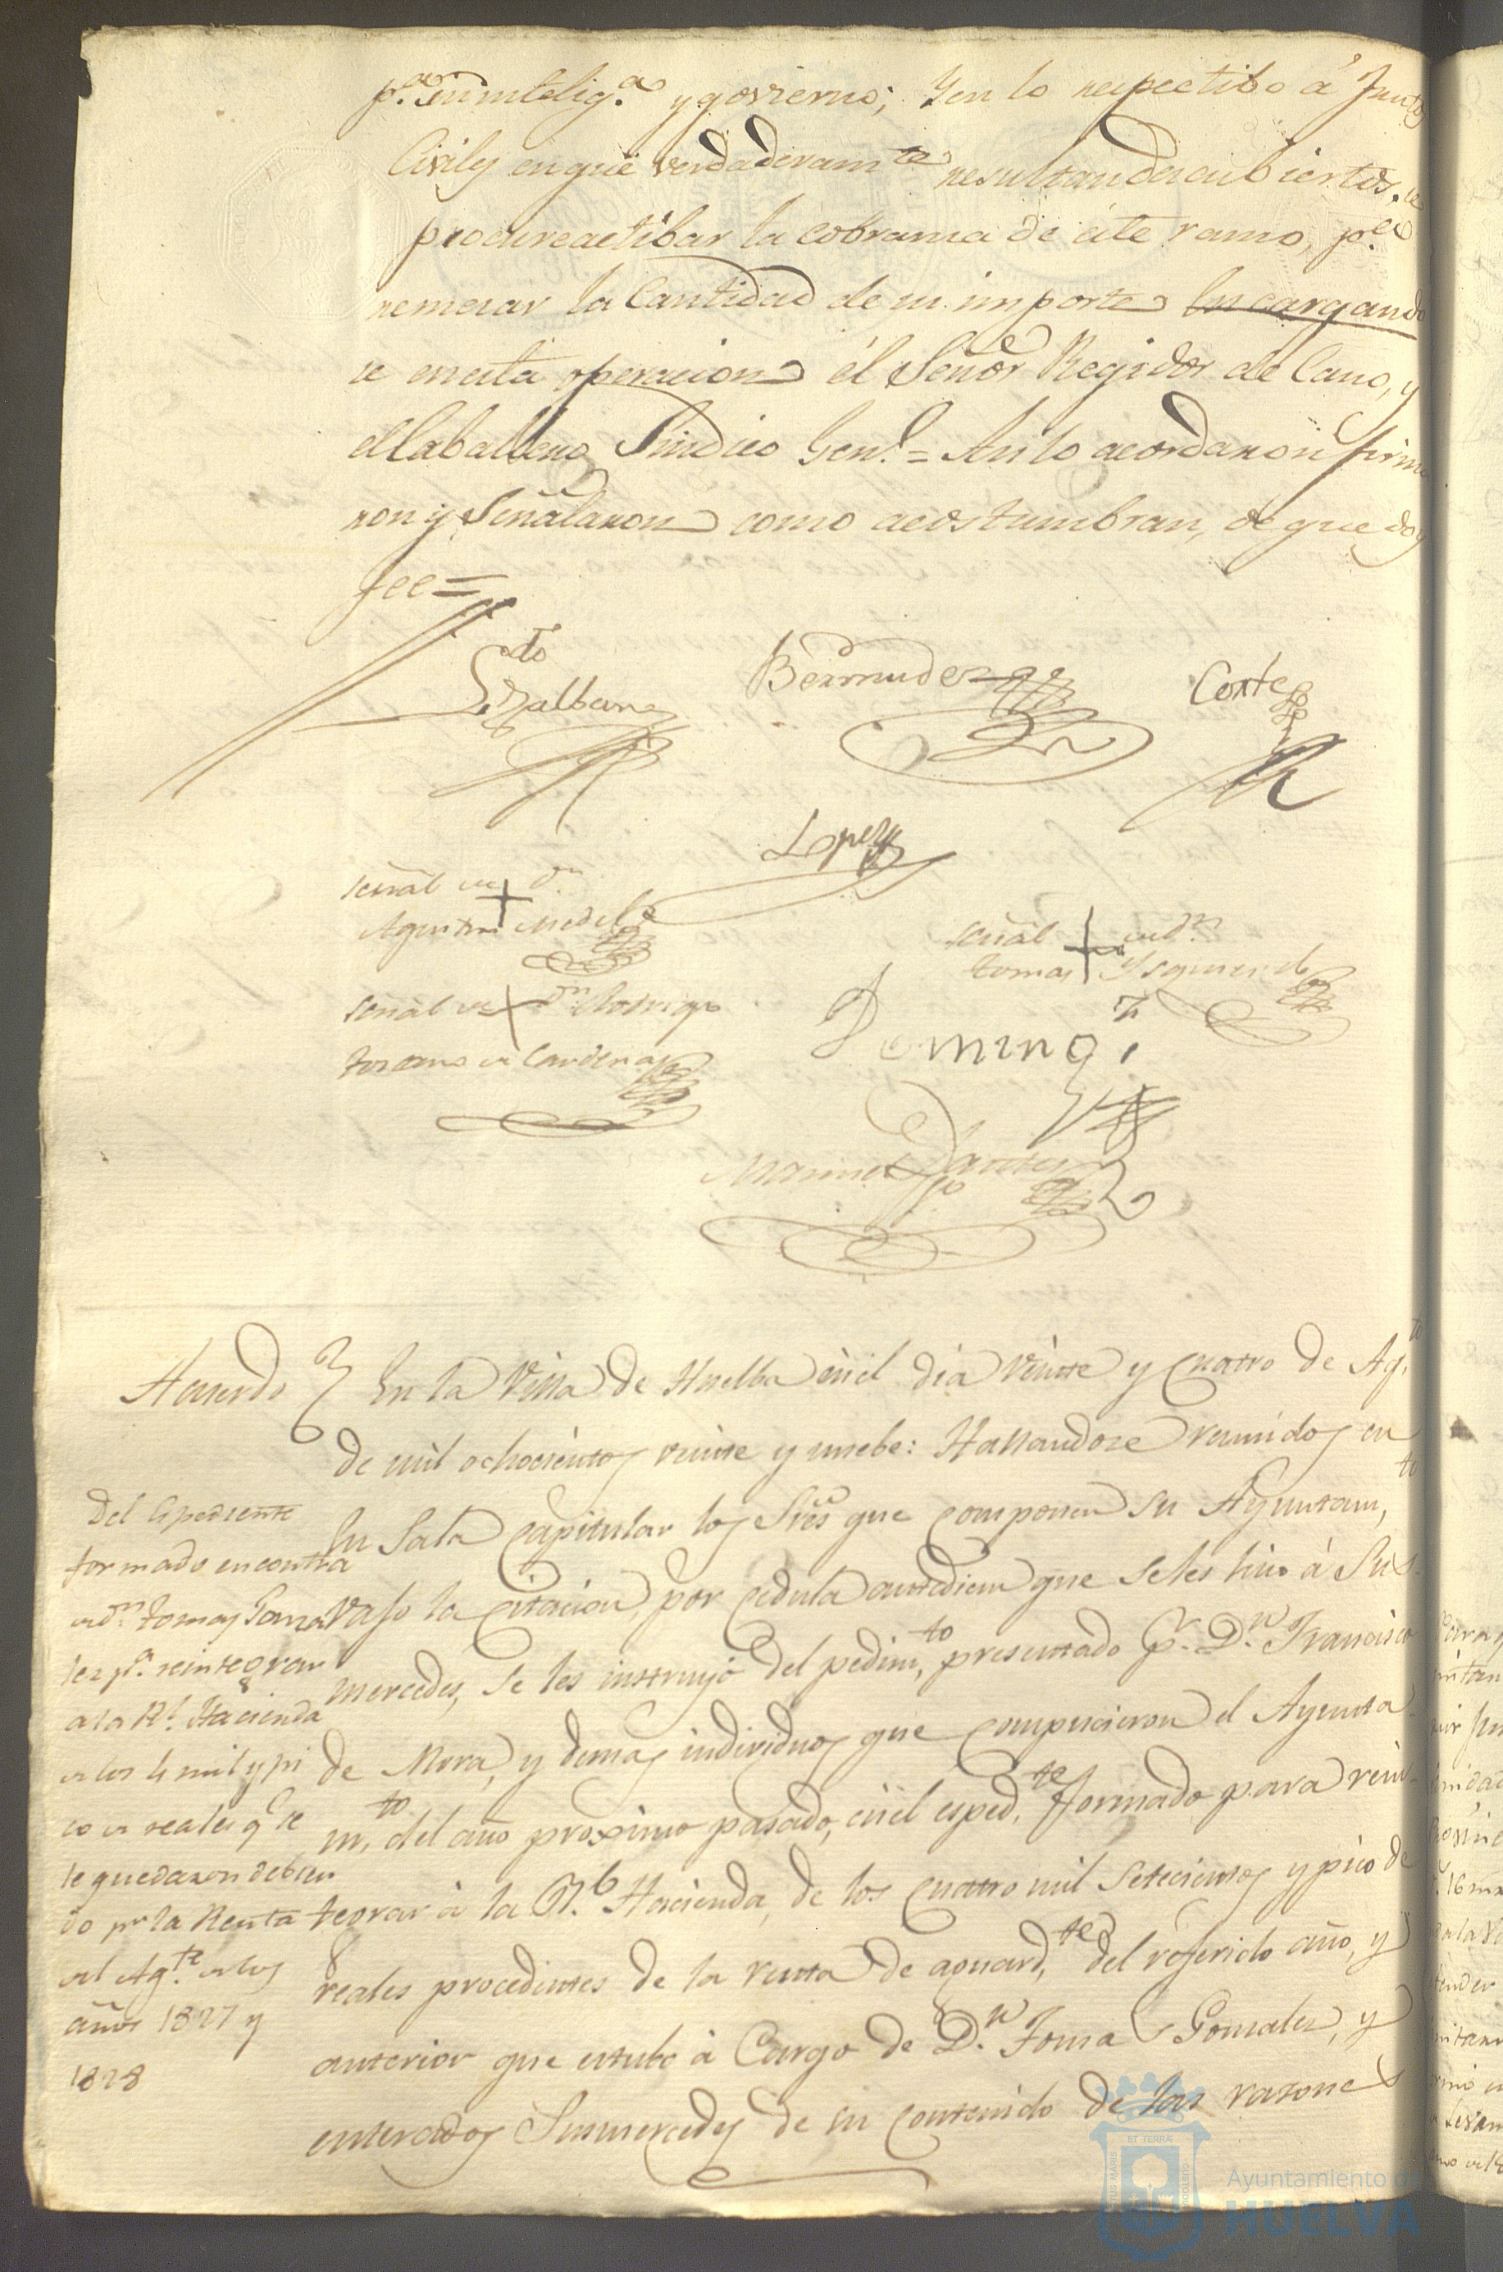 pª su intelig.ª y govierno; Y en lo respectibo á Frutos
Civiles en que verdaderam.te resultan descubiertos, se
procure actibar la cobranza de este ramo, p.ª
remesar la Cantidad de su importe encargando
se en esta operacion el Señor Regidor de Cano, y
el Caballero Sindico Gen.l = Asi lo acordaron firma
ron y Señalaron como acostumbran, de que doy
fee =
Ldo
Bermudez
Corte
Lopez
señal de + Dn
Agustin Medel
señal + de Dn
Tomas Ysquierdo
señal de + Dn Rodrigo
de Cardenas
Doming.z
Manuel
Acuerdo
En la Villa de Huelba en el dia veinte y cuatro de Ag.to
de mil ochocientos veinte y nuebe: Hallandose reunidos en
su Sala Capitular los Sres que componen su Ayuntam.to
vajo la citacion, por cedula antediem que se les hizo á Sus
mercedes, se les instruyó del pedim.to presentado p.r D.n Francisco
de Mora, y demas individuos que compusieron el Ayunta
m.to del año proximo pasado, en el esped.te formado para rein-
tegrar á la Rl. Hacienda, de los cuatro mil setecientos y pico de
reales procedentes de la renta de aguard.te del referido año, y
anterior que estubo á Cargo de D.n Tomas Gonzalez, y
enterados Susmercedes de su contenido de las razones
Del Espediente
formado en contra
de Dn Tomas Gonza
lez pª reintegrar
a la Rl. Hacienda
de los 4 mil y pi
co de reales q.e se
le quedaron debien
do pr la Renta
del Ag.te de los
años 1827 y
1828
ET TERRAE
Ayuntamiento de
HUELVA